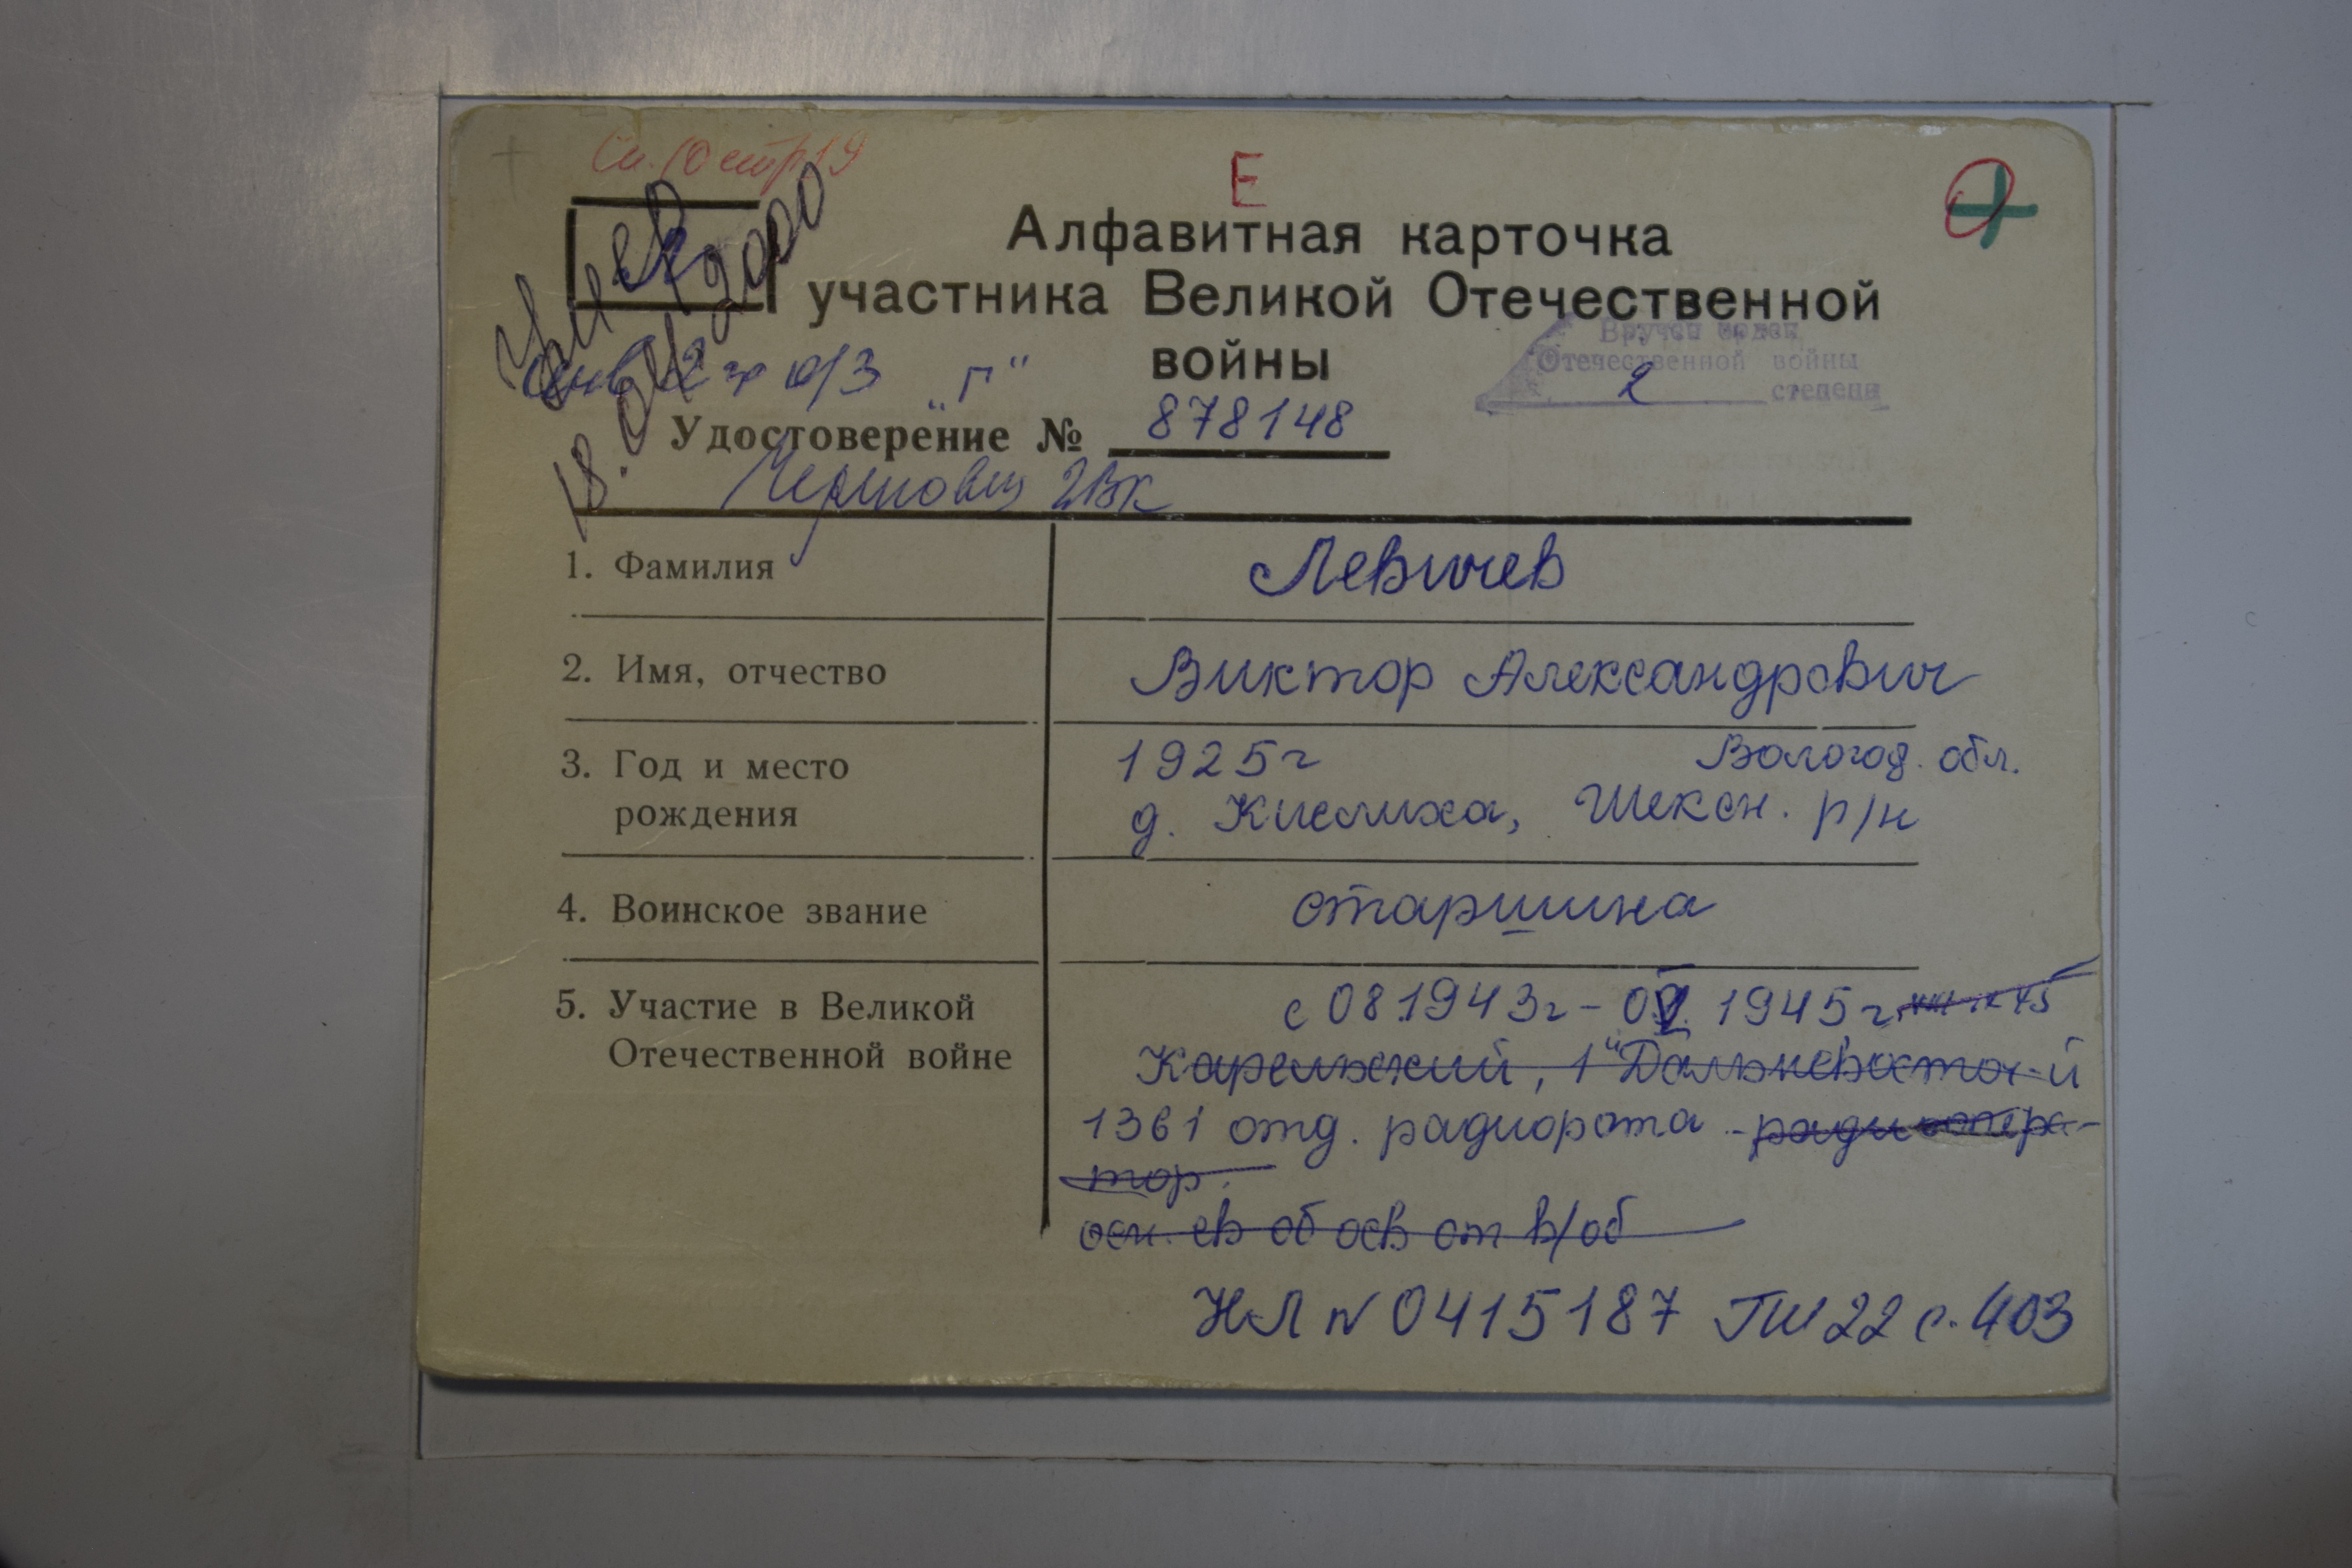 Сп. 10 стр 19
Е
Алфавитная карточка
участника Великой Отечественной
войны
Умер
18.04.2000
инв 2 гр ю/з "Г"
Вручен орден
Отечественной войны
2 степени
Удостоверение № 878148
Череповец ГВК
1. Фамилия Левичев
2. Имя, отчество Виктор Александрович
3. Год и место рождения 1925г Вологод. обл.
д. Кислиха, Шексн. р/н
4. Воинское звание старшина
5. Участие в Великой Отечественной войне с 08.1943г - 1945г
Карельский, 1й Дальневосточ-й
1361 отд. радиорота - радиоопера-
тор.
осн. св об осв от в/об
НЛ N 0415187 ГШ 22 с. 403